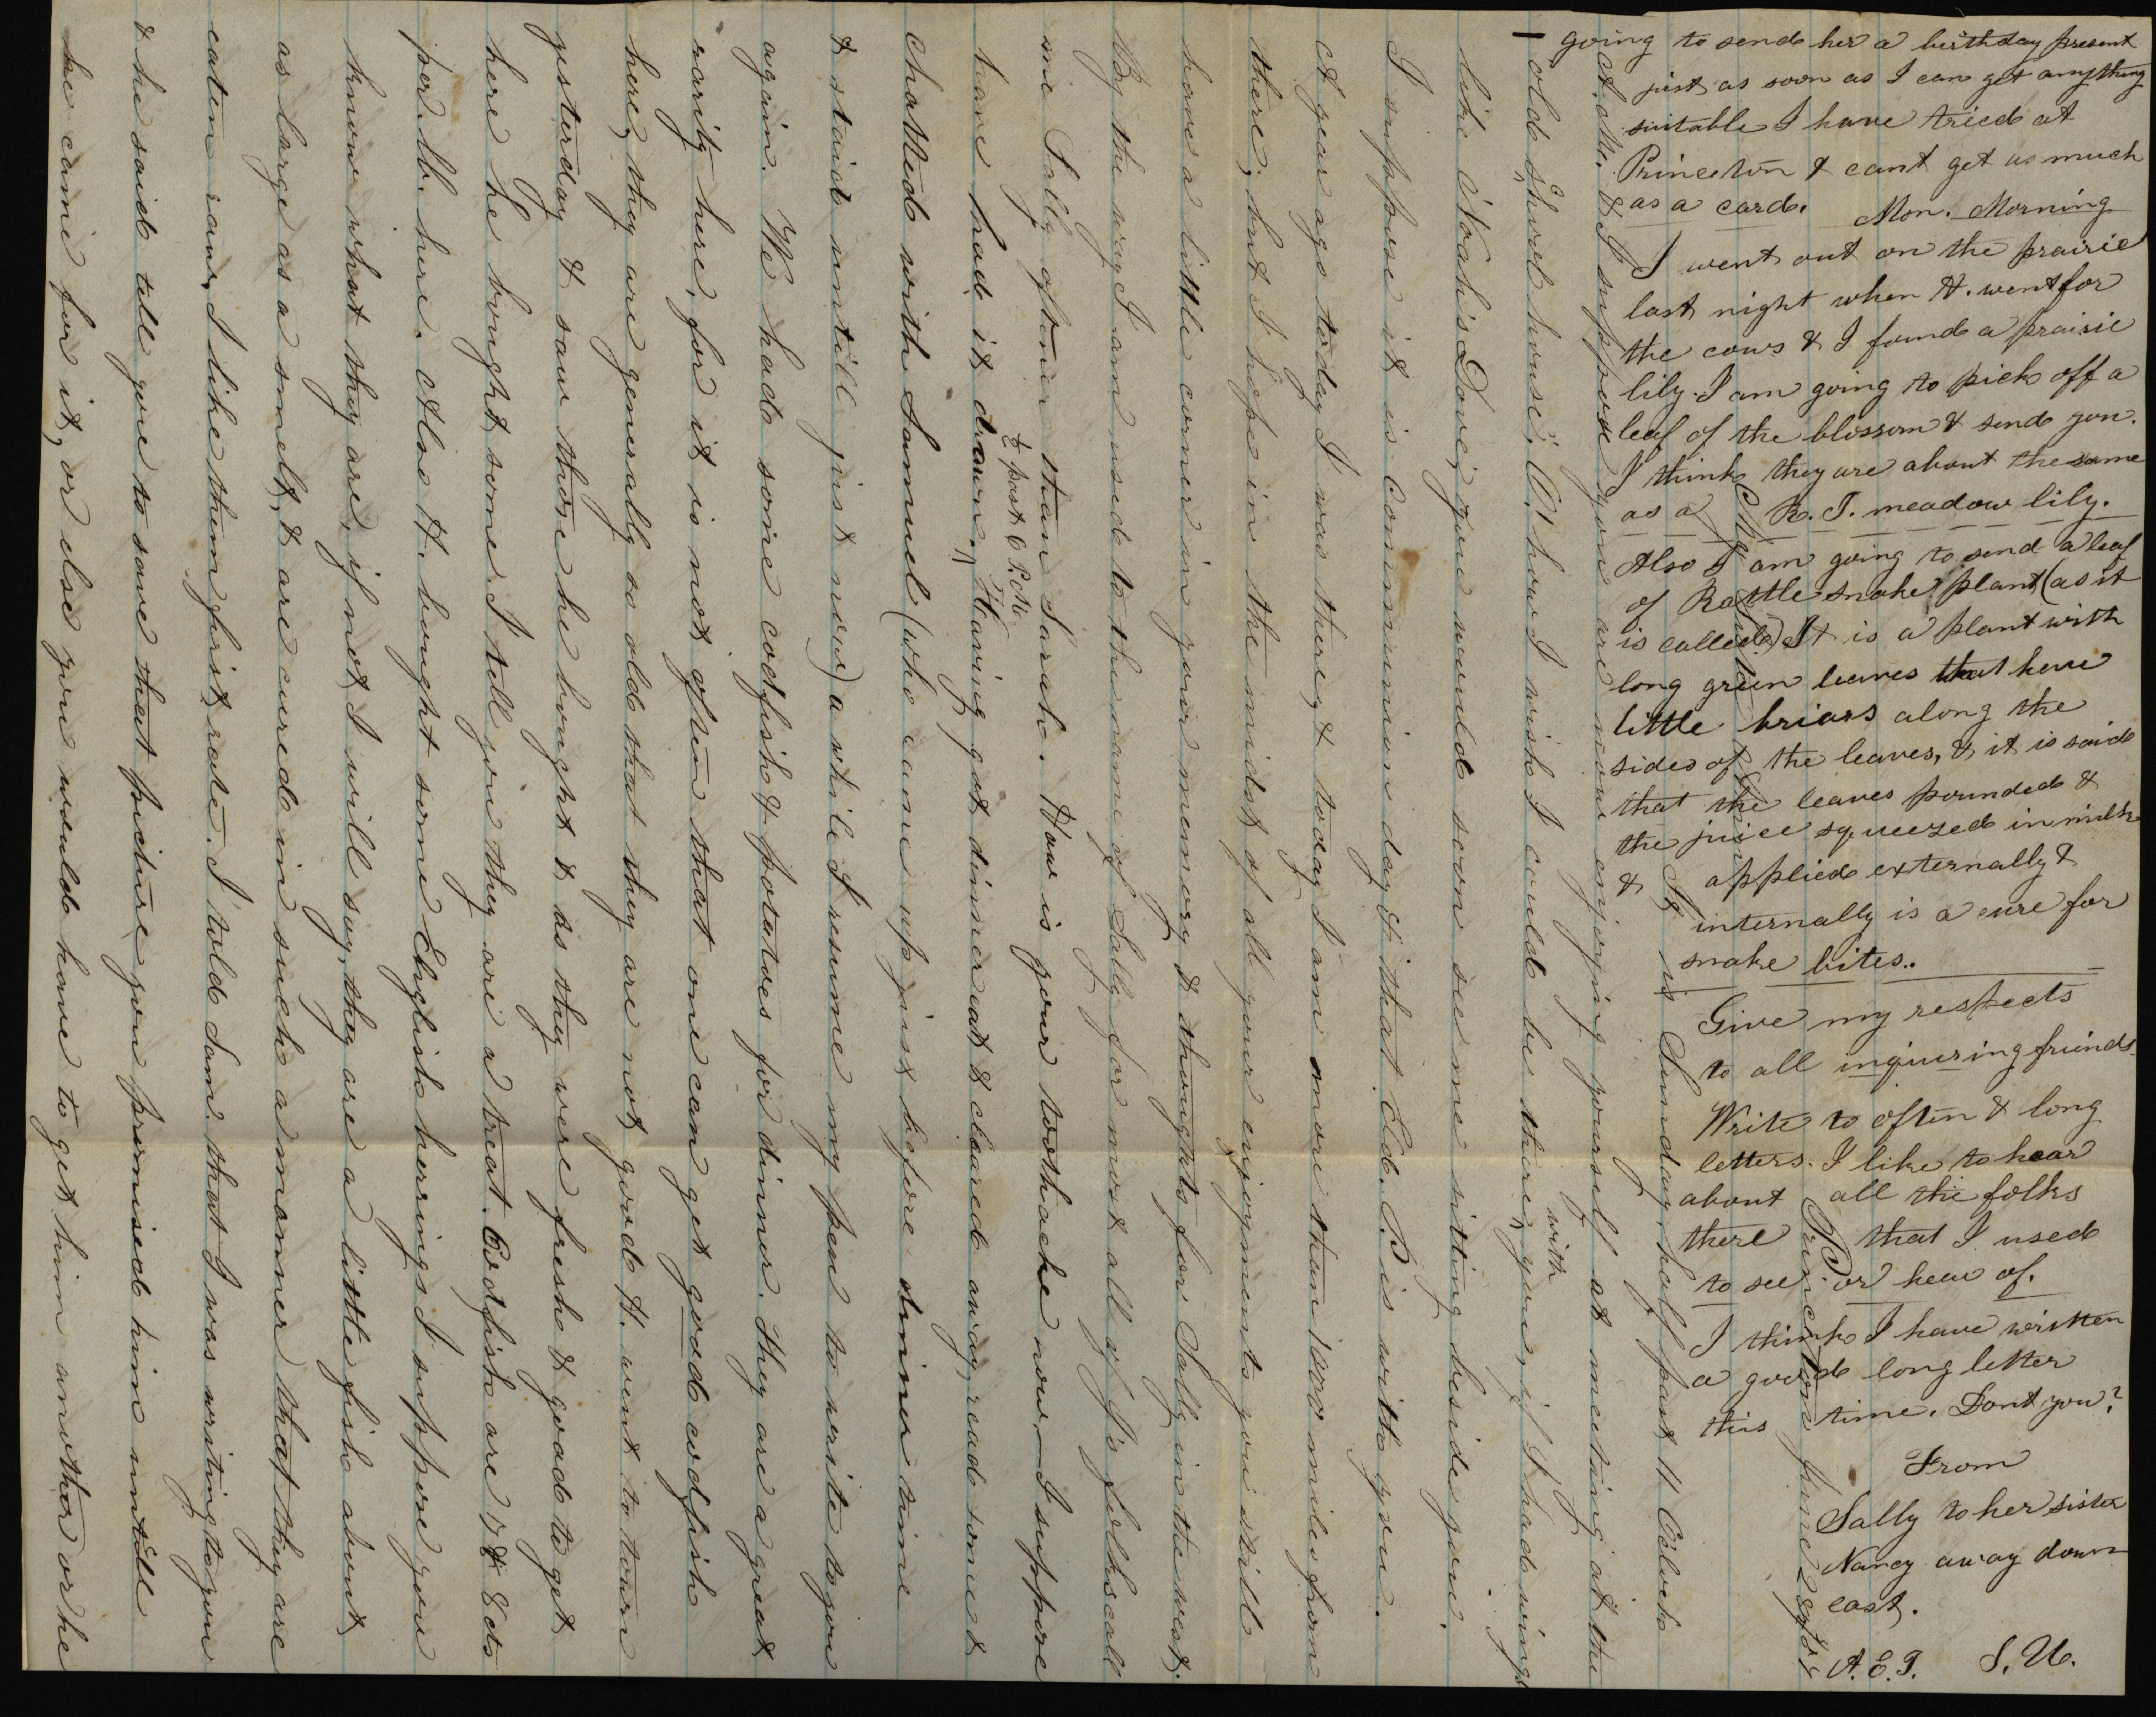 My dear Sister
Princeton June 28th
It is Sunday, half past 11 Oclock
A.M. & I suppose you are now enjoying yourself at meeting at the
"old School house", O! how I wish I could be there, with you, if I had wings
like Noah's Dove, you would soon see me sitting beside you.
I suppose it is Communion day & that Eld. P. is with you.
A year ago today I was there, & today I am more than 1000 miles from
there, but I hope in the midst of all your enjoyments you still
have a little corner in your memory & thoughts for Sally in the west.
By the way I am used to the name of Sally for most all of J's folks call
me Sally oftener than Sarah. How is your toothache now,— I suppose
have had it drawn.
½ past 6 P.M.
Having got dinner eat & cleared away, read some &
chatted with Samuel (who came up just before dinner time
& staid untill just now) a while I resume my pen to write to you
again. We had some codfish & potatoes for dinner. They are a great
rarity here, for it is not often that one can get good codfish
here, they are generally so old that they are not good. H. went to town
yesterday & saw those he bought & as they were fresh & good to get
here he bought some. I tell you they are a treat. Codfish are 7 & 8 cts
per. lb. here. Also H. bought some English herrings I suppose you
know what they are, if not, I will say, they are a little fish about
as large as a smelt, & are cured in such a manner that they are
eaten raw, I like them first rate. I told Sam. that I was writing to you
& he said tell you to save that picture you promised him untill
he came for it, or else you would have to get him another or he
going to send her a birthday present
just as soon as I can get anything
suitable I have tried at
Princeton & cant get as much
as a card. Mon. Morning
I went out on the prairie
last night when H. went for
the cows & I found a praisie
lily. I am going to pick off a
leaf of the blossom & send you.
I think they are about the same
as a R. I. meadow lily.
Also I am going to send a leaf
of Rattle snake plant (as it
is called) It is a plant with
long green leaves that have
little briars along the
sides of the leaves, & it is said
that the leaves pounded &
the juice squeezed in milk
& applied externally &
internally is a cure for
snake bites.
Give my respects
to all inquiring friends
Write to often & long
letters. I like to hear
about all the folks
there that I used
to see or hear of.
I think I have written
a good long letter
this time. Dont you?
From
Sally to her sister
Nancy away down
east.
A. E. T. S. U.